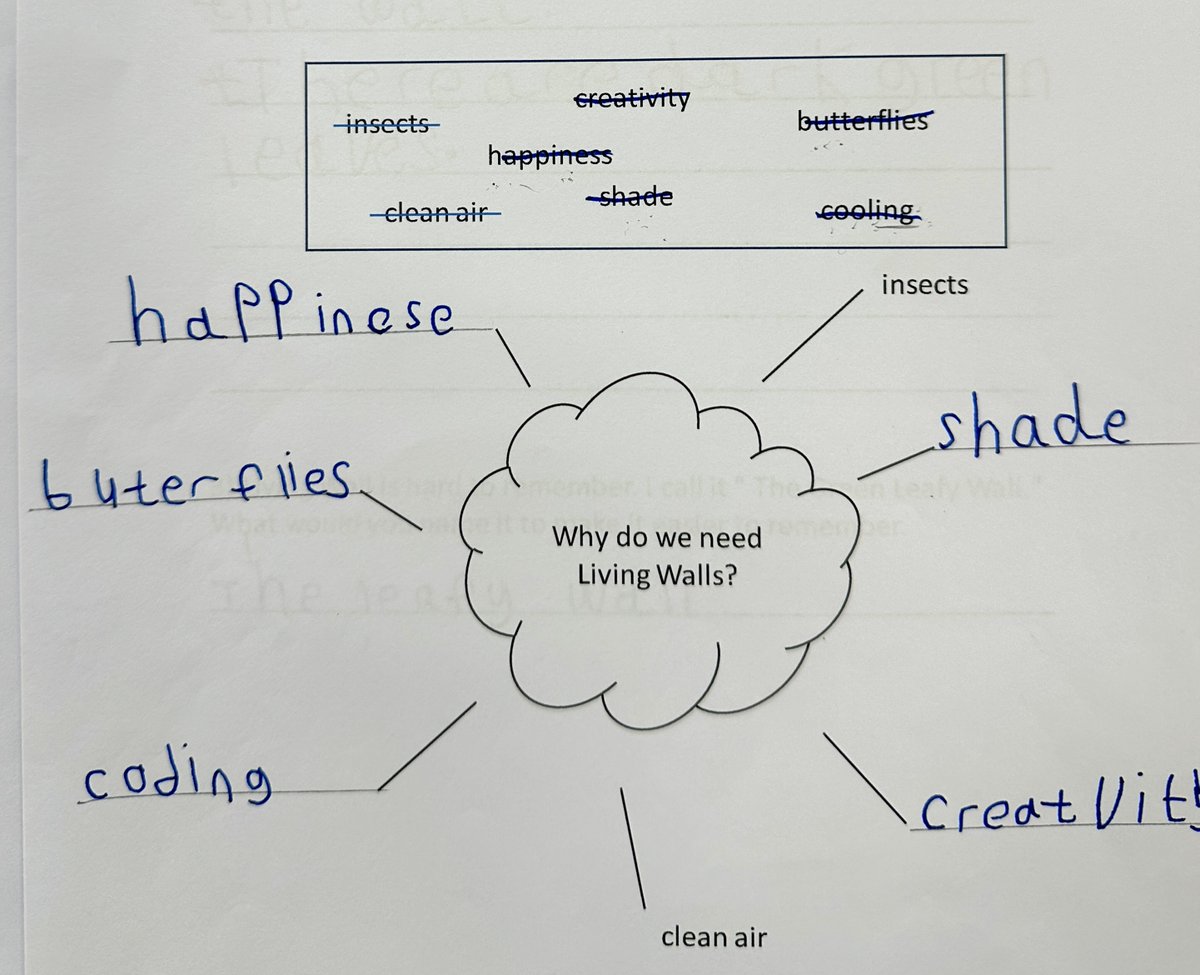 creativity
insects
butterflies
happiness
shade
clean air
cooling
insects
happinese
shade
buterflies
Why do we need
Living Walls?
coding
creatvity
clean air